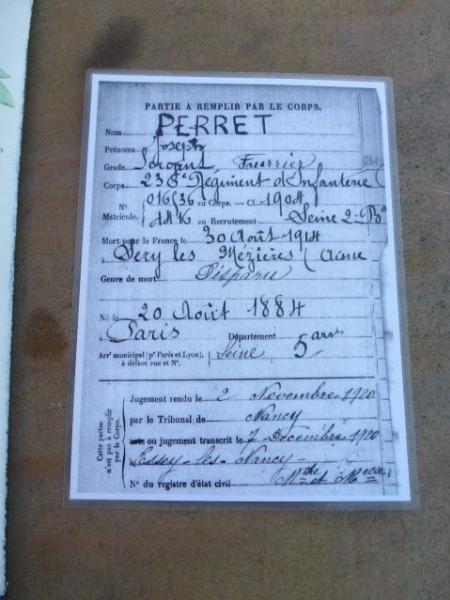 PARTIE À REMPLIR PAR LE CORPS.
Nom PERRET
Prénoms Joseph
Grade Sergent Fourrier
Corps 236e Régiment d'Infanterie
N° 016536 au Corps. — Cl. 1904
Matricule. 1446 au Recrutement Seine 2e Bau
Mort pour la France le 30 Août 1914
à Séry les Mézières (Aisne
Genre de mort Disparu
Né le 20 Août 1884
à Paris Département
Arrt municipal (pr Paris et Lyon), Seine 5 arrt
à défaut rue et N°.
Cette partie n'est pas à remplir par le Corps.
Jugement rendu le 2 Novembre 1920
par le Tribunal de Nancy
acte ou jugement transcrit le 7 Décembre 1920
Essey-les-Nancy
Mthe et Melle
N° du registre d'état civil